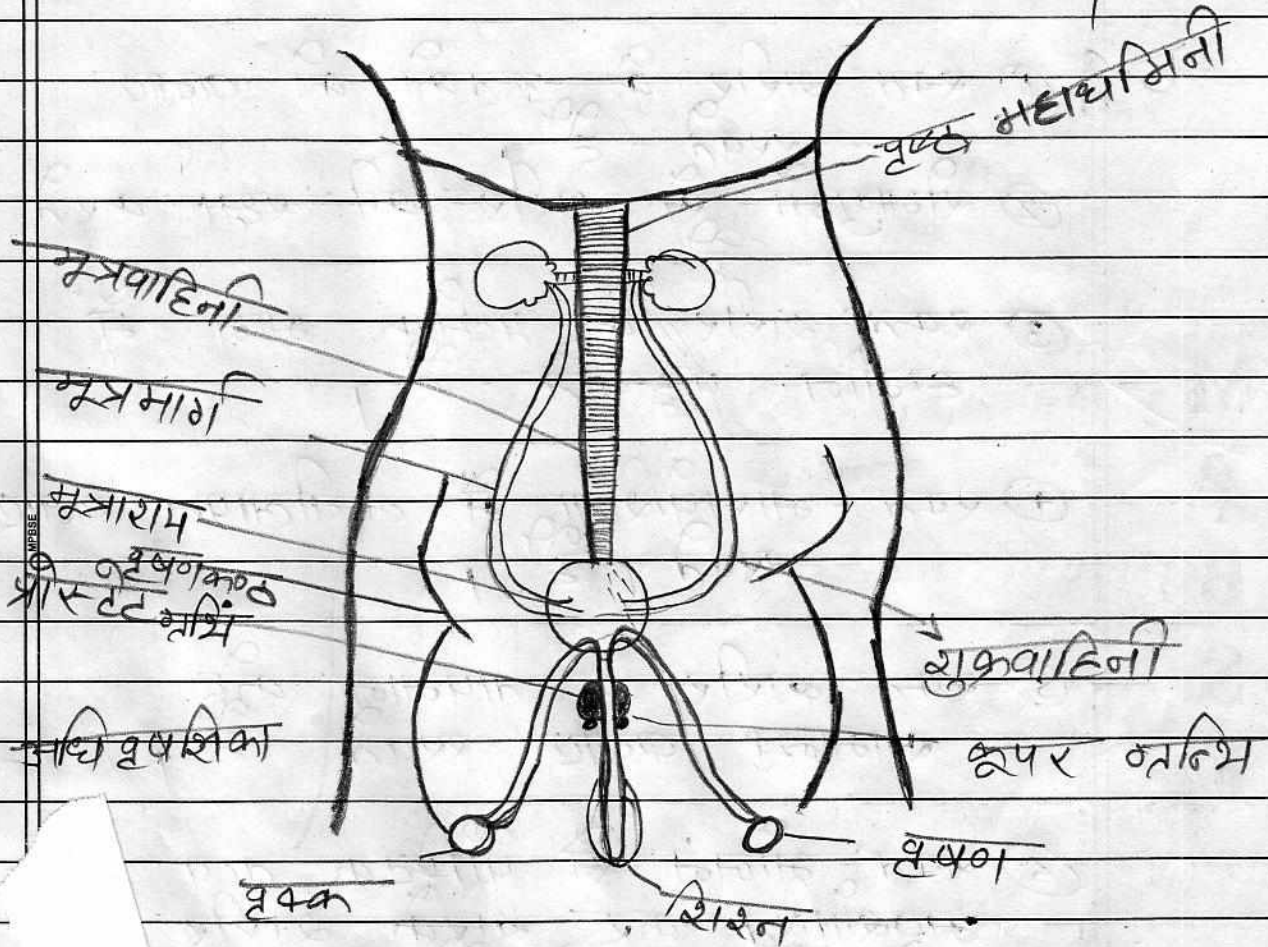 पृष्ठ महाधमिनी
मूत्रवाहिनी
मूत्रमार्ग
मूत्राशय
वृषणकण्ठ
प्रोस्टेट ग्रथिं
शुक्रवाहिनी
अधिवृषशिका
कूपर ग्रन्थि
वृषण
वृक्क
शिश्न
MPBSE